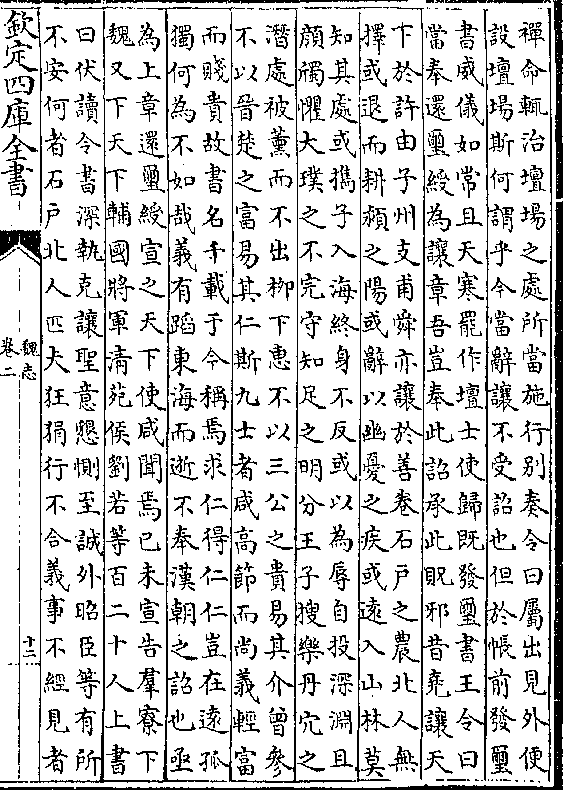 禪命輒治壇場之處所當施行別奏令曰屬出見外便
設壇場斯何謂乎今當辭讓不受詔也但於帳前發璽
書威儀如常且天寒罷作壇士使歸既發璽書王令曰
當奉還璽綬為讓章吾豈奉此詔承此貺邪昔堯讓天
下於許由子州支甫舜亦讓於善卷石戶之農北人無
擇或退而耕潁之陽或辭以幽憂之疾或遠入山林莫
知其處或攜子入海終身不反或以為辱自投深淵且
顏觸懼大璞之不完守知足之明分王子搜樂丹穴之
潛處被薰而不出柳下惠不以三公之貴易其介曾參
不以晉楚之富易其仁斯九士者咸高節而尚義輕富
而賤貴故書名千載于今稱焉求仁得仁仁豈在遠孤
獨何為不如哉義有蹈東海而逝不奉漢朝之詔也亟
為上章還璽綬宣之天下使咸聞焉已未宣告羣寮下
魏又下天下輔國將軍清苑侯劉若等百二十人上書
曰伏讀令書深執克讓聖意懇惻至誠外昭臣等有所
不安何者石戶北人匹夫狂狷行不合義事不經見者
欽定四庫全書
魏志
卷二
十二